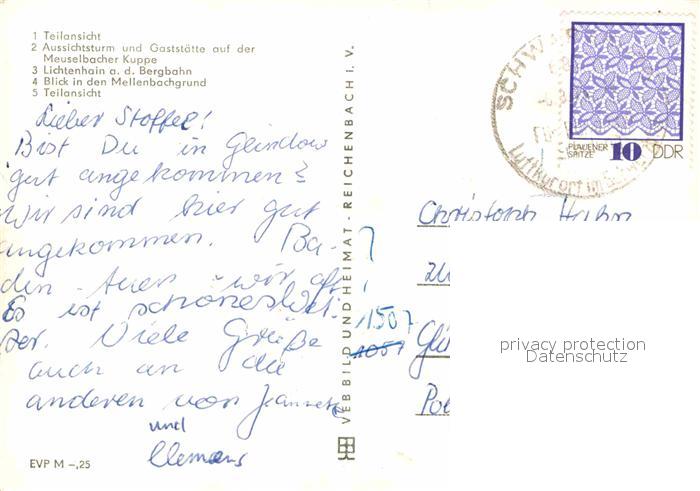 1 Teilansicht
2 Aussichtsturm und Gaststätte auf der
Meuselbacher Kuppe
3 Lichtenhain a. d. Bergbahn
4 Blick in den Mellenbachgrund
5 Teilansicht
Lieber Stoffel!
Bist Du in Glindow
gut angekommen?
Wir sind hier gut
angekommen. Ba-
den tuen wir oft
Es ist schönes Wet-
ter. Viele Grüße
auch an die
anderen von Jeannette
und
Clemens
EVP M –,25
VEB BILD UND HEIMAT · REICHENBACH I. V.
SCHWA
Luftkurort im
PLAUENER
SPITZE 10 DDR
Christoph
Gli
1507
1057
privacy protection
Datenschutz